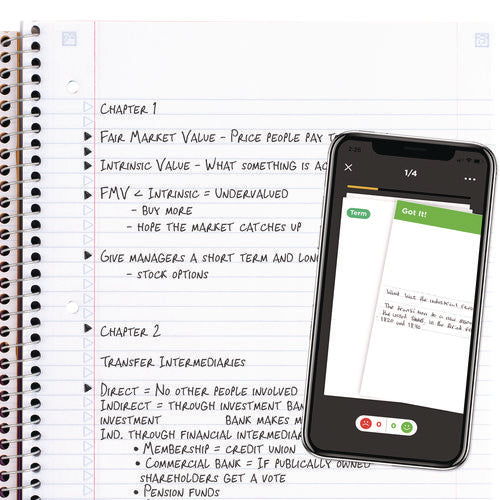 CHAPTER 1
FAIR MARKET VALUE - PRICE PEOPLE PAY
INTRINSIC VALUE - WHAT SOMETHING IS
FMV < INTRINSIC = UNDERVALUED
- BUY MORE
- HOPE THE MARKET CATCHES UP
GIVE MANAGERS A SHORT TERM AND
- STOCK OPTIONS
CHAPTER 2
TRANSFER INTERMEDIARIES
DIRECT = NO OTHER PEOPLE INVOLVED
INDIRECT = THROUGH INVESTMENT
INVESTMENT BANK MAKES
IND. THROUGH FINANCIAL
• MEMBERSHIP = CREDIT UNION
• COMMERCIAL BANK = IF PUBLICALLY OWNED
SHAREHOLDERS GET A VOTE
• PENSION FUNDS
2:36
1/4
Term
Got It!
What was the industrial
The transition to a new
1820 and 1840
0 0